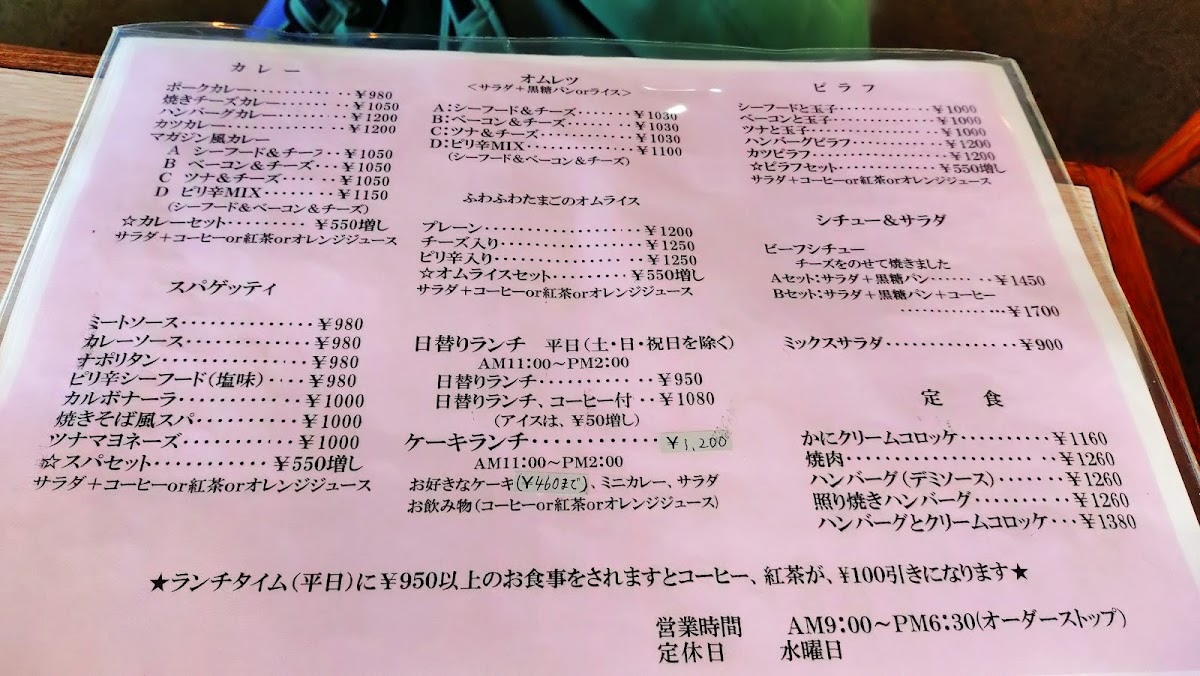 カレー
ポークカレー・・・・・・・・・・・¥980
焼きチーズカレー・・・・・・・・¥1050
ハンバーグカレー・・・・・・・・¥1200
カツカレー・・・・・・・・・・・・・¥1200
マガジン風カレー
A シーフード&チーズ・・・¥1050
B ベーコン&チーズ・・・・¥1050
C ツナ&チーズ・・・・・・・¥1050
D ピリ辛MIX・・・・・・・・¥1150
(シーフード&ベーコン&チーズ)
☆カレーセット・・・・・・・・・¥550増し
サラダ+コーヒーor紅茶orオレンジジュース
スパゲッティ
ミートソース・・・・・・・・・・・・・¥980
カレーソース・・・・・・・・・・・・・¥980
ナポリタン・・・・・・・・・・・・・・・¥980
ピリ辛シーフード(塩味)・・・・¥980
カルボナーラ・・・・・・・・・・・・¥1000
焼きそば風スパ・・・・・・・・・・¥1000
ツナマヨネーズ・・・・・・・・・・¥1000
☆スパセット・・・・・・・・・・¥550増し
サラダ+コーヒーor紅茶orオレンジジュース
オムレツ
<サラダ+黒糖パンorライス>
A:シーフード&チーズ・・・・・・・¥1030
B:ベーコン&チーズ・・・・・・・・¥1030
C:ツナ&チーズ・・・・・・・・・・・¥1030
D:ピリ辛MIX・・・・・・・・・・・・¥1100
(シーフード&ベーコン&チーズ)
ふわふわたまごのオムライス
プレーン・・・・・・・・・・・・・・・・・¥1200
チーズ入り・・・・・・・・・・・・・・・¥1250
ピリ辛入り・・・・・・・・・・・・・・・¥1250
☆オムライスセット・・・・・・・・・¥550増し
サラダ+コーヒーor紅茶orオレンジジュース
日替りランチ 平日(土・日・祝日を除く)
AM11:00~PM2:00
日替りランチ・・・・・・・・・・・¥950
日替りランチ、コーヒー付・・・¥1080
(アイスは、¥50増し)
ケーキランチ・・・・・・・・・・・・・・¥1,200
AM11:00~PM2:00
お好きなケーキ(¥460まで)、ミニカレー、サラダ
お飲み物(コーヒーor紅茶orオレンジジュース)
ピラフ
シーフードと玉子・・・・・・・・・・¥1000
ベーコンと玉子・・・・・・・・・・・・¥1000
ツナと玉子・・・・・・・・・・・・・・・¥1000
ハンバーグピラフ・・・・・・・・・・¥1200
カツピラフ・・・・・・・・・・・・・・・¥1200
☆ピラフセット・・・・・・・・・・¥550増し
サラダ+コーヒーor紅茶orオレンジジュース
シチュー&サラダ
ビーフシチュー
チーズをのせて焼きました
Aセット:サラダ+黒糖パン・・・・・・・・¥1450
Bセット:サラダ+黒糖パン+コーヒー
・・・・・・・・・・・・・¥1700
ミックスサラダ・・・・・・・・・・・・・¥900
定 食
かにクリームコロッケ・・・・・・・・・・¥1160
焼肉・・・・・・・・・・・・・・・・・・・・・¥1260
ハンバーグ(デミソース)・・・・・・・¥1260
照り焼きハンバーグ・・・・・・・・・・¥1260
ハンバーグとクリームコロッケ・・・¥1380
★ランチタイム(平日)に¥950以上のお食事をされますとコーヒー、紅茶が、¥100引きになります★
営業時間 AM9:00~PM6:30(オーダーストップ)
定休日 水曜日